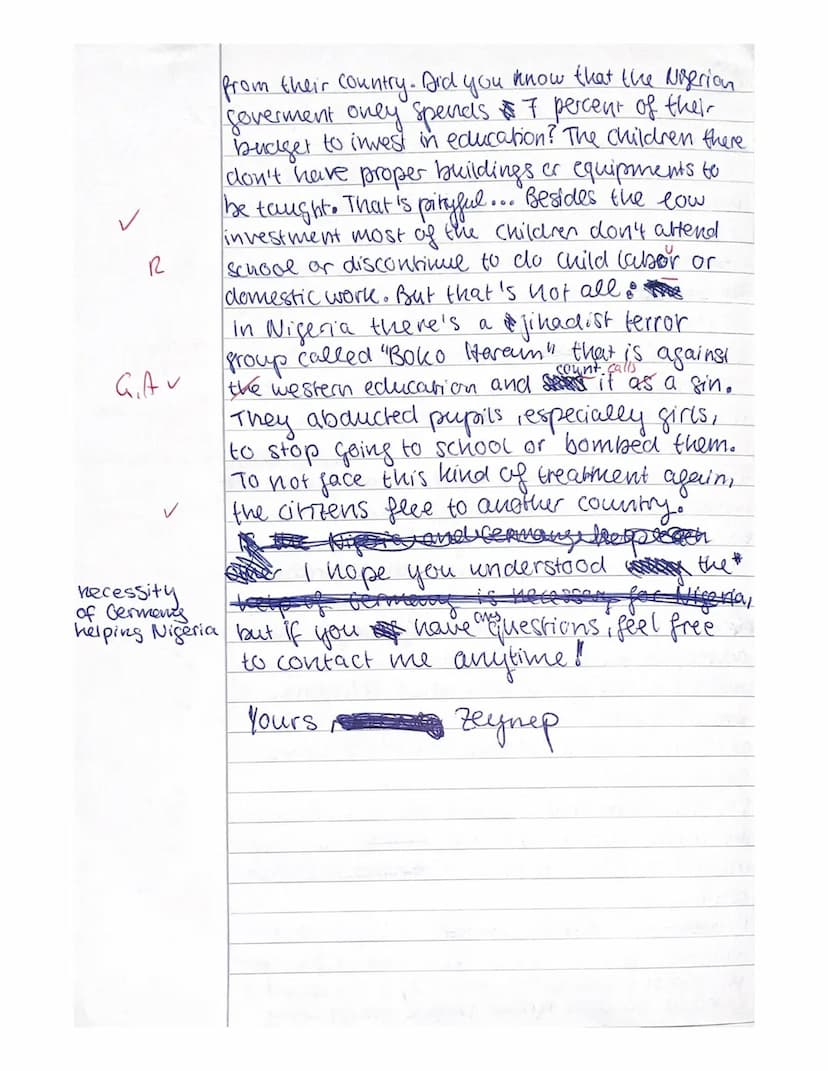 from their country. Did you know that the Nigerian
goverment only spends 7 percent of their
budget to invest in education? The children there
don't have proper buildings or equipments to
be taught. That's pityful... Besides the low
✓
investment most of the children don't attend
R
school or discontinue to do child labour or
domestic work. But that's not all:
In Nigeria there's a jihadist terror
group called "Boko Haram" that is against
G, A ✓
the western education and count calls it as a sin.
They abducted pupils, especially girls,
to stop going to school or bombed them.
To not face this kind of treatment again,
✓
the citizens flee to another country.
If the Nigeria and Germany help each
other I hope you understood the*
necessity
of Germany
helping Nigeria
help of Germany is necessary for Nigeria,
but if you have any questions, feel free
to contact me anytime!
Yours Zeynep